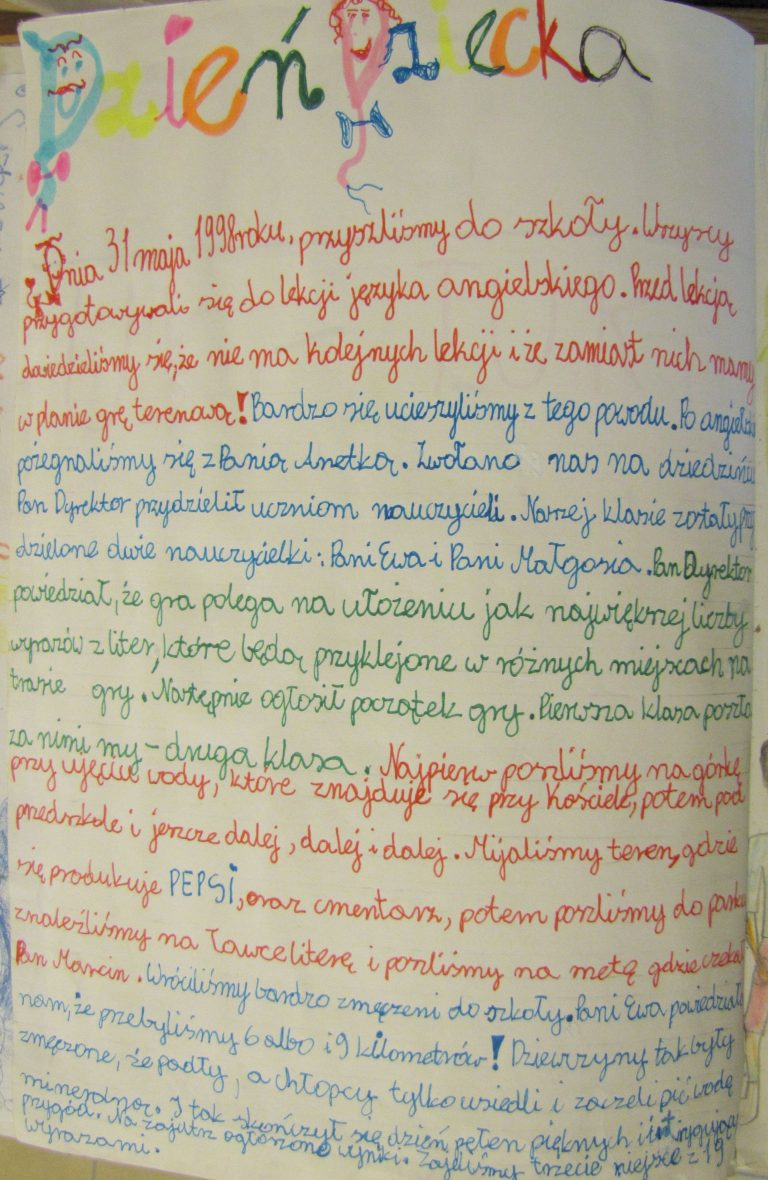 Dzień Dziecka
Dnia 31 maja 1998 roku, przyszliśmy do szkoły. Wszyscy
przygotowywali się do lekcji języka angielskiego. Przed lekcją
dowiedzieliśmy się, że nie ma kolejnych lekcji i że zamiast nich mamy
w planie grę terenową! Bardzo się ucieszyliśmy z tego powodu. Po angielsk
pożegnaliśmy się z Panią Anetką. Zwołano nas na dziedzińcu
Pan Dyrektor przydzielił uczniom nauczycieli. Naszej klasie zostały przy
dzielone dwie nauczycielki: Pani Ewa i Pani Małgosia. Pan Dyrektor
powiedział, że gra polega na ułożeniu jak największej liczby
wyrazów z liter, które będą przyklejone w różnych miejscach na
trasie gry. Następnie ogłosił początek gry. Pierwsza klasa poszła
za nimi my - druga klasa. Najpierw poszliśmy na górkę
przy ujęciu wody, które znajduje się przy Kościele, potem pod
przedszkole i jeszcze dalej, dalej i dalej. Mijaliśmy teren, gdzie
się produkuje PEPSI, oraz cmentarz, potem poszliśmy do parku
znaleźliśmy na ławce literę i poszliśmy na metę gdzie czekał
Pan Marcin. Wróciliśmy bardzo zmęczeni do szkoły. Pani Ewa powiedziała
nam, że przebyliśmy 6 albo i 9 kilometrów! Dziewczyny tak były
zmęczone, że padły, a chłopcy tylko usiedli i zaczeli pić wodę
mineralną. I tak skończył się dzień pełen pięknych i
przygód. Na zajutrz ogłoszono wyniki. Zajeliśmy trzecie miejsce z 19
wyrazami.